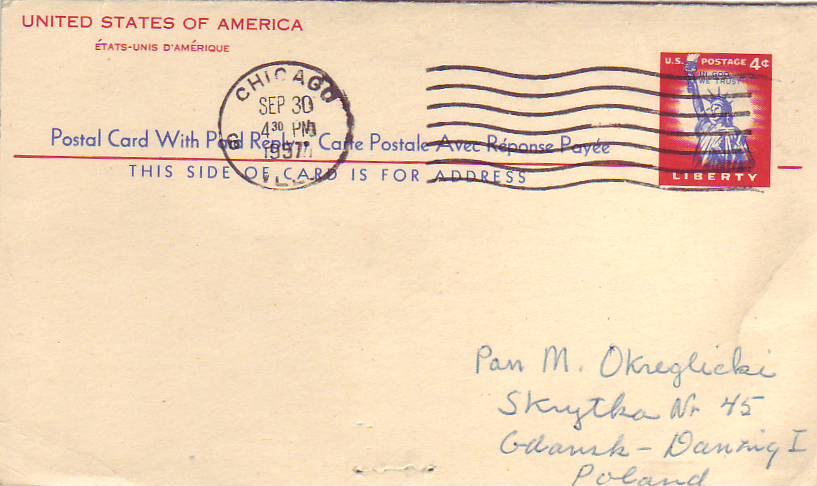 UNITED STATES OF AMERICA
ÉTATS-UNIS D'AMÉRIQUE
U.S. POSTAGE 4¢
IN GOD WE TRUST
LIBERTY
CHICAGO
SEP 30
4 30 PM
1957
ILL.
Postal Card With Paid Reply • Carte Postale Avec Réponse Payée
THIS SIDE OF CARD IS FOR ADDRESS
Pan M. Okreglicki
Skrytka Nr 45
Gdansk - Danzig I
Poland